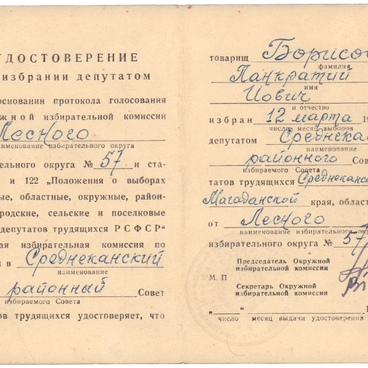 УДОСТОВЕРЕНИЕ
избрании депутатом
основании протокола голосования
жной избирательной комиссии
Лесного
наименование избирательного округа
ельного округа № 57 и ста-
и 122 „Положения о выборах
вые, областные, окружные, район-
ородские, сельские и поселковые
депутатов трудящихся РСФСР"
ная избирательная комиссия по
в Среднеканский
наименование
районный Совет
избираемого Совета
ов трудящихся удостоверяет, что
товарищ Борисов
фамилия
Панкратий
имя
Иович
и отчество
избран 12 марта 19
число месяц выборов
депутатом Среднекан
наименование
районного Сове
избираемого Совета
татов трудящихся Среднекан
Магаданской края, област
от Лесного
наименование избирательно
избирательного округа № 57
Председатель Окружной
избирательной комиссии
М. П
Секретарь Окружной
избирательной комиссии
„ "
число месяц выдачи удостоверения